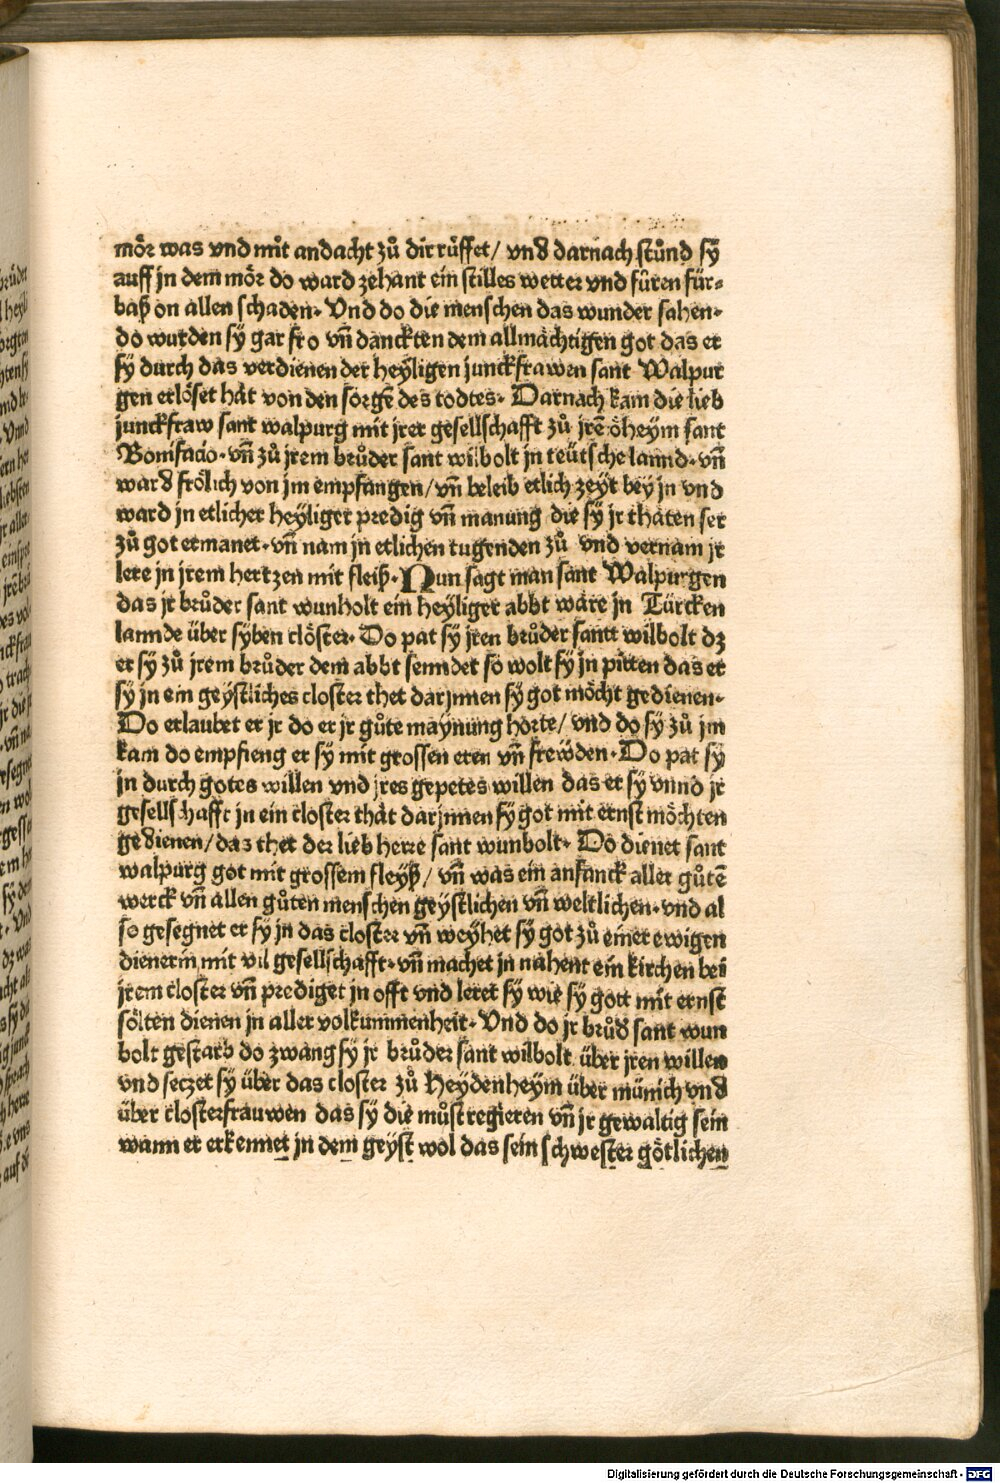 mör was vnd mit andacht zů dir rüffet/ vnd darnach stůnd sÿ
auff in dem mör do ward zehant ein stilles wetter vnd fůren für-
baß on allen schaden. Vnd do die menschen das wunder sahen.
do wurden sÿ gar fro vñ danckten dem allmächtigen got das er
sÿ durch das verdienen der heÿligen junckfrawen sant Walpur
gen erlöset hät von den sorgē des todtes. Darnach kam die lieb
junckfraw sant walpurg mit jrer gesellschafft zů jrē öheÿm sant
Bonifacio. vñ zů jrem brůder sant wilbolt jn teütsche lannd. vñ
ward frölich von jm empfangen/ vñ beleib etlich zeÿt beÿ jn vnd
ward jn etlicher heÿliger predig vñ manung die sÿ jr thäten ser
zů got ermanet. vñ nam jn etlichen tugenden zů vnd vernam jr
lere in jrem hertzen mit fleiß. Nun sagt man sant Walpurgen
das jr brůder sant wunholt ein heÿliger abbt wäre jn Türcken
lannde über sÿben clöster. Do pat sÿ jren brůder santt wilbolt dz
er sÿ zů jrem brůder dem abbt senndet so wolt sÿ jn pitten das er
sÿ jn ein geÿstliches closter thet darjnnen sÿ got möcht gedienen.
Do erlaubet er jr do er jr gůte maynung horte/ vnd do sÿ zů jm
kam do empfieng er sÿ mit grossen eren vñ frewden. Do pat sÿ
jn durch gotes willen vnd jres gepetes willen das er sÿ vnnd jr
gesellschafft jn ein closter thät darjnnen sÿ got mit ernst möchten
gedienen/ das thet der lieb herre sant wunbolt. Do dienet sant
walpurg got mit grossem fleÿß/ vñ was ein anfanck aller gůtē
werck vñ allen gůten menschen geÿstlichen vñ weltlichen. vnd al
so gesegnet er sÿ jn das closter vñ weÿhet sÿ got zů einer ewigen
dienerin mit vil gesellschafft. vñ machet jn nahent ein kirchen bei
jrem closter vñ prediget jn offt vnd leret sÿ wie sÿ gott mit ernst
sölten dienen jn aller volkummenheit. Vnd do jr brůd sant wun
bolt gestarb do zwang sÿ jr brůder sant wilbolt über jren willen
vnd seczet sÿ über das closter zů Heÿdenheÿm über münich vnd
über closterfrauwen das sÿ die můst regieren vñ jr gewaltig sein
wann er erkennet jn dem geÿst wol das sein schwester götlichen
Digitalisierung gefördert durch die Deutsche Forschungsgemeinschaft - DFG